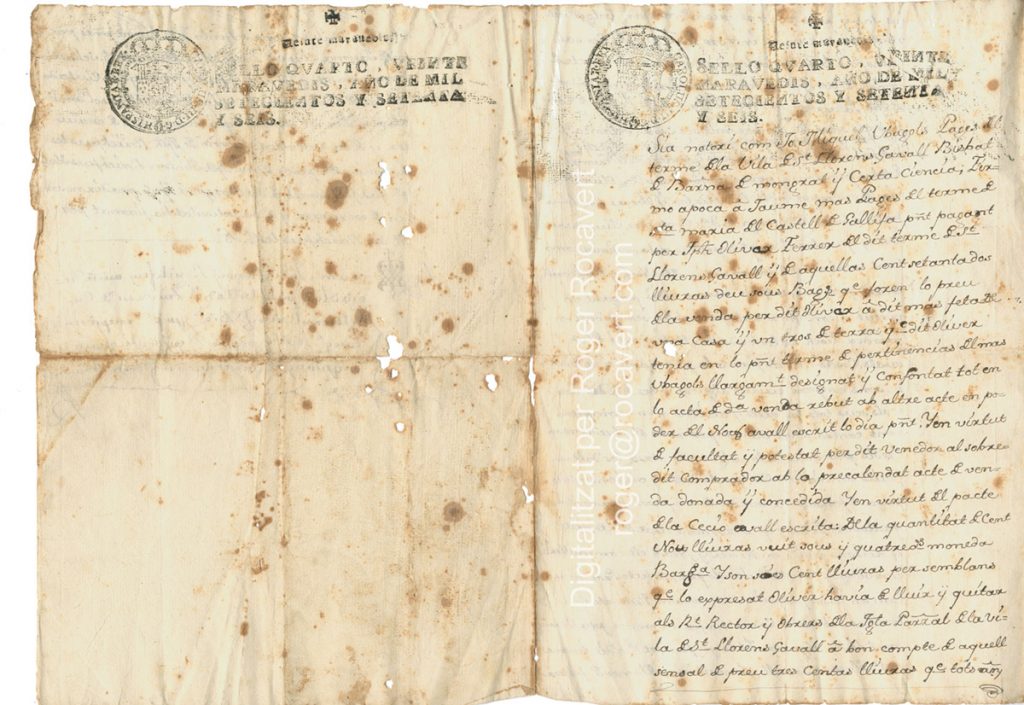 Veinte maravedis.
SELLO QVARTO, VEINTE
MARAVEDIS, AÑO DE MIL
SETECIENTOS Y SETENTA
Y SEIS.
Veinte maravedis.
SELLO QVARTO, VEINTE
MARAVEDIS, AÑO DE MIL
SETECIENTOS Y SETENTA
Y SEIS.
Sia notori com Jo Miquel Vbagols Pages del
terme dla Vila d St. Llorens Savall Bisbat
d Barna d mongrat ÿ Certa Ciencia; Fir-
mo apoca á Jaume mas Pages del terme d
Sta. maria del Castell d Gallifa pñt pagant
per Jph Olivar Ferrer del dit terme d St.
Llorens Savall ÿ d aquellas Cent setanta dos
lliuras deu sous Bars. qe. foren lo preu
dla venda per dit Olivár á dit mas feta de
vna Casa ÿ vn tros d terra ÿ qe. dit Oliver
tenia en lo pñt terme d pertinencias del mas
Vbagols llargamt. designat ÿ Confontat tot en
lo acta d da. venda rebut ab altre acte en po-
der del Not. avall escrit lo dia pñt. Yen virtut
d facultat ÿ potestat per dit Venedor al sobre-
dit Comprador ab lo precalendat acte d ven-
da donada ÿ concedida Yen virtut del pacte
dla Cecio avall escrita: Dla quantitat d Cent
Nou lliuras vuit sous ÿ quatre ds. moneda
Barsa. Yson Cent lliuras per semblans
qe. lo expresat Oliver havia d lluir ÿ quitar
als Rt. Rector ÿ Obrers dla Igla Parral dla vi-
la d St. Llorens Savall á bon compte d aquell
sensal d preu tres Centas lliuras qe. tots añy
Digitalitzat per Roger Rocavert
roger@rocavert.com